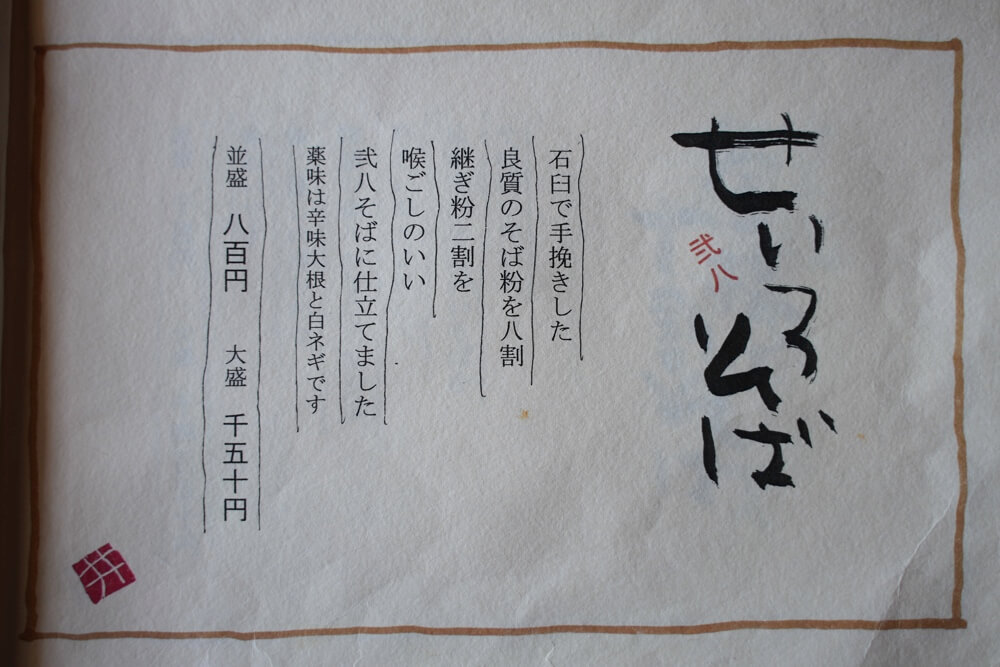 せいろそば
弐八
石臼で手挽きした
良質のそば粉を八割
継ぎ粉二割を
喉ごしのいい
弐八そばに仕立てました
薬味は辛味大根と白ネギです
並盛 八百円 大盛 千五十円